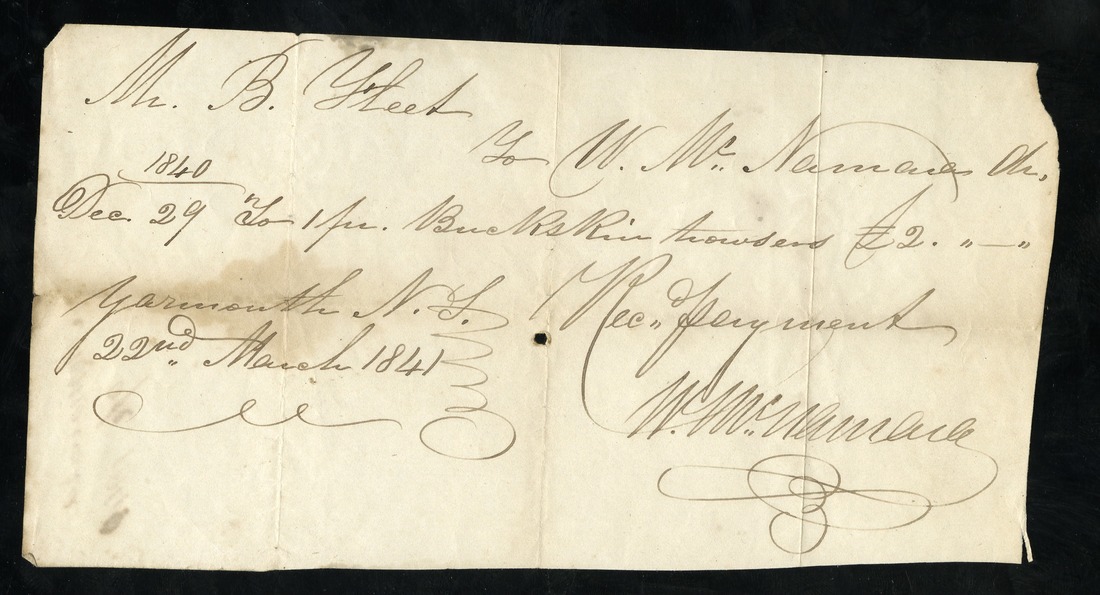 Mr. B. Fleet
To W. Mc. Namara Dr.
1840
Dec. 29 To 1 pr. Buckskin trowsers £2. " — "
Yarmouth N.S.
22nd March 1841
Rec'd payment
W. Mc. Namara